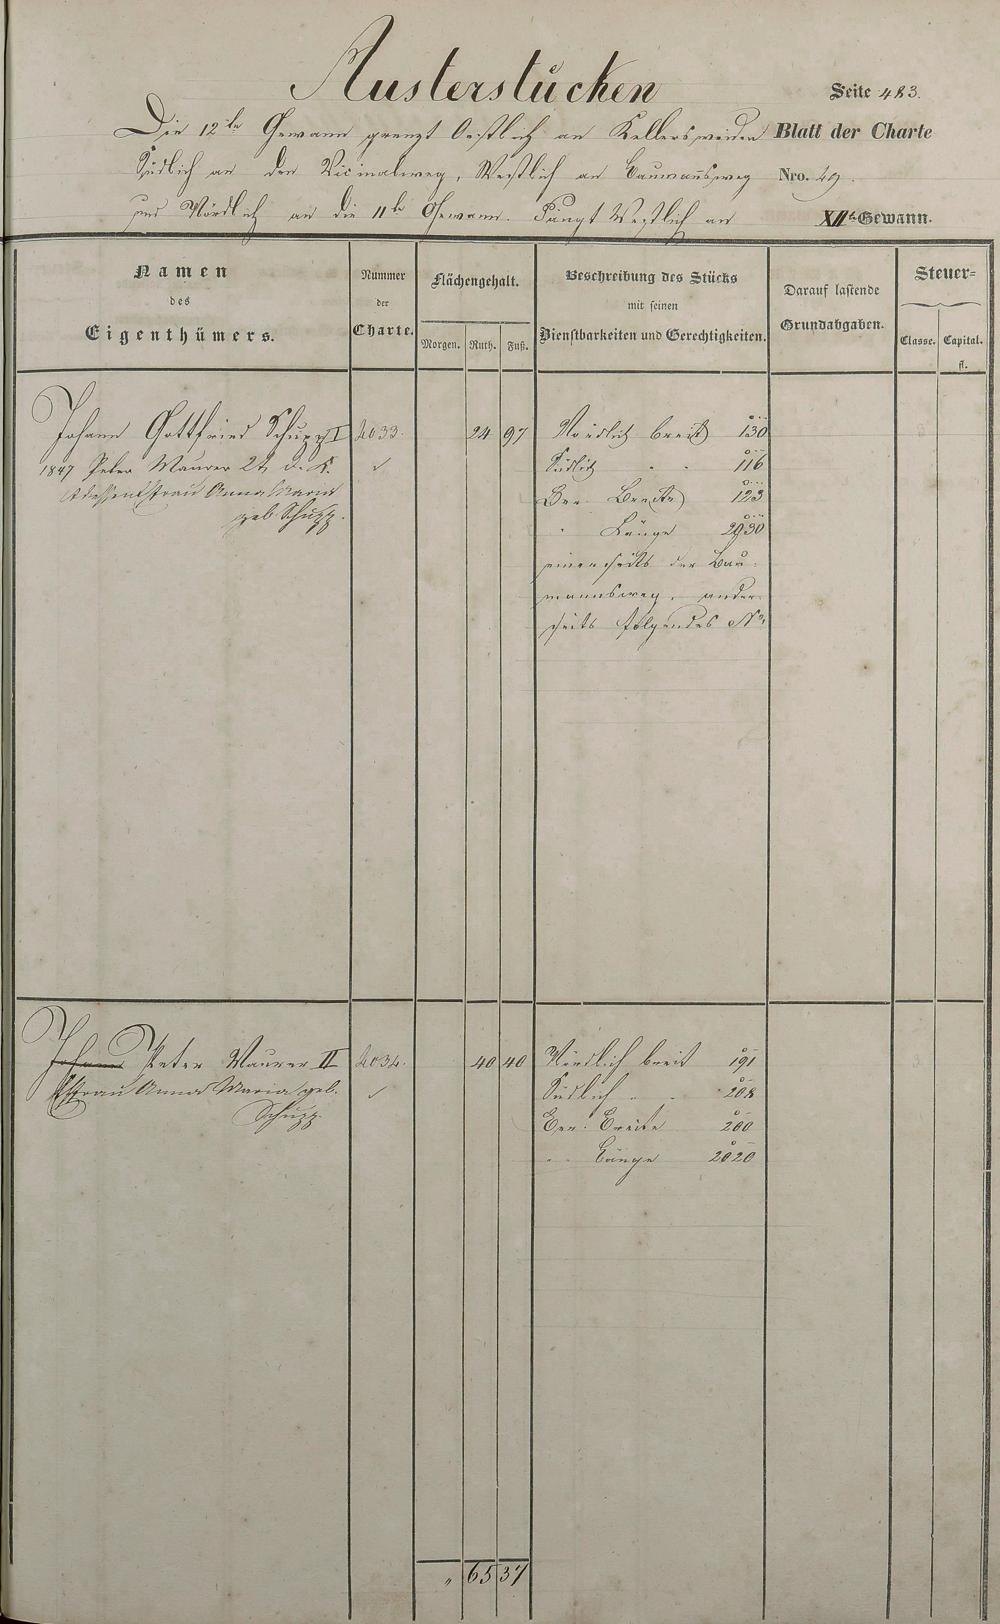 Austerstücken
Seite 483.
Die 12te Gewann grenzt Oestlich an Kellersweiden
Blatt der Charte
Südlich an den Vicinalweg, Westlich an Baumannsweg
Nro. 29.
und Nördlich an die 11te Gewann. Fängt Westlich an
XIIte Gewann.
Namen
des
Eigenthümers.
Nummer
der
Charte.
Flächengehalt.
Morgen. Ruth. Fuß.
Beschreibung des Stücks
mit seinen
Dienstbarkeiten und Gerechtigkeiten.
Darauf lastende
Grundabgaben.
Steuer=
Classe. Capital.
fl.
Johann Gottfried Schupp I 4033. 24 97 Nördlich breit 130
1847 Peter Maurer 2t d. K. ✓ Südlich " " 116
Ehefrau Anna Maria Ber. Breite 123
geb. Schupp. " Länge 2030
einerseits der Bau-
mannsweg, ander-
seits folgendes No
Johann Peter Maurer II 4034. 40 40 Nördlich breit 191
Ehefrau Anna Maria geb. ✓ Südlich " " 208
Schupp. Ber. Breite 200
" Länge 2020
" 65 37